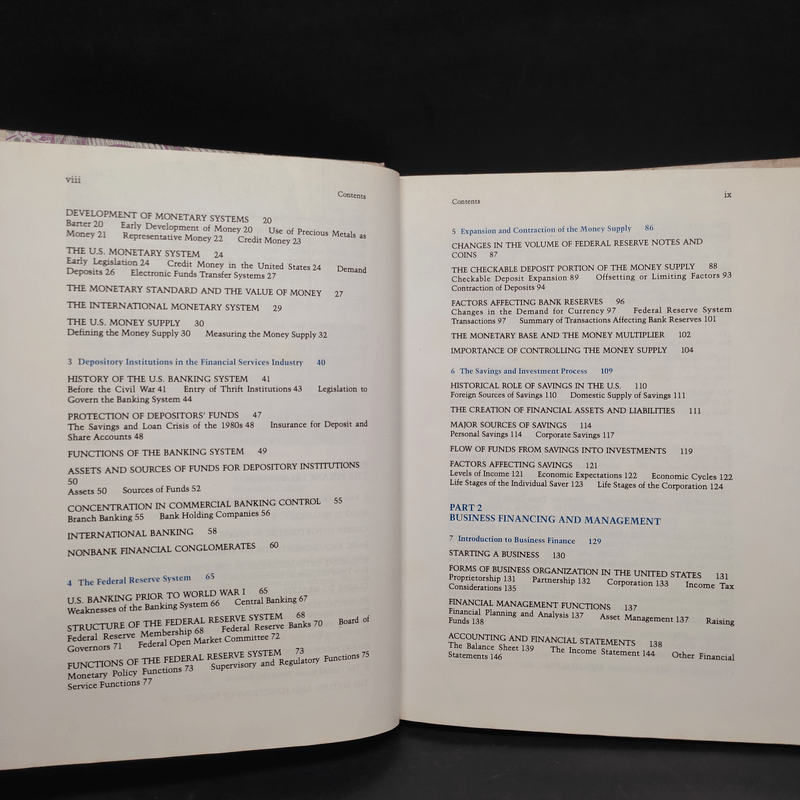 viii
Contents
DEVELOPMENT OF MONETARY SYSTEMS 20
Barter 20 Early Development of Money 20 Use of Precious Metals as
Money 21 Representative Money 22 Credit Money 23
THE U.S. MONETARY SYSTEM 24
Early Legislation 24 Credit Money in the United States 24 Demand
Deposits 26 Electronic Funds Transfer Systems 27
THE MONETARY STANDARD AND THE VALUE OF MONEY 27
THE INTERNATIONAL MONETARY SYSTEM 29
THE U.S. MONEY SUPPLY 30
Defining the Money Supply 30 Measuring the Money Supply 32
3 Depository Institutions in the Financial Services Industry 40
HISTORY OF THE U.S. BANKING SYSTEM 41
Before the Civil War 41 Entry of Thrift Institutions 43 Legislation to
Govern the Banking System 44
PROTECTION OF DEPOSITORS' FUNDS 47
The Savings and Loan Crisis of the 1980s 48 Insurance for Deposit and
Share Accounts 48
FUNCTIONS OF THE BANKING SYSTEM 49
ASSETS AND SOURCES OF FUNDS FOR DEPOSITORY INSTITUTIONS
50
Assets 50 Sources of Funds 52
CONCENTRATION IN COMMERCIAL BANKING CONTROL 55
Branch Banking 55 Bank Holding Companies 56
INTERNATIONAL BANKING 58
NONBANK FINANCIAL CONGLOMERATES 60
4 The Federal Reserve System 65
U.S. BANKING PRIOR TO WORLD WAR I 65
Weaknesses of the Banking System 66 Central Banking 67
STRUCTURE OF THE FEDERAL RESERVE SYSTEM 68
Federal Reserve Membership 68 Federal Reserve Banks 70 Board of
Governors 71 Federal Open Market Committee 72
FUNCTIONS OF THE FEDERAL RESERVE SYSTEM 73
Monetary Policy Functions 73 Supervisory and Regulatory Functions 75
Service Functions 77
Contents
ix
5 Expansion and Contraction of the Money Supply 86
CHANGES IN THE VOLUME OF FEDERAL RESERVE NOTES AND
COINS 87
THE CHECKABLE DEPOSIT PORTION OF THE MONEY SUPPLY 88
Checkable Deposit Expansion 89 Offsetting or Limiting Factors 93
Contraction of Deposits 94
FACTORS AFFECTING BANK RESERVES 96
Changes in the Demand for Currency 97 Federal Reserve System
Transactions 97 Summary of Transactions Affecting Bank Reserves 101
THE MONETARY BASE AND THE MONEY MULTIPLIER 102
IMPORTANCE OF CONTROLLING THE MONEY SUPPLY 104
6 The Savings and Investment Process 109
HISTORICAL ROLE OF SAVINGS IN THE U.S. 110
Foreign Sources of Savings 110 Domestic Supply of Savings 111
THE CREATION OF FINANCIAL ASSETS AND LIABILITIES 111
MAJOR SOURCES OF SAVINGS 114
Personal Savings 114 Corporate Savings 117
FLOW OF FUNDS FROM SAVINGS INTO INVESTMENTS 119
FACTORS AFFECTING SAVINGS 121
Levels of Income 121 Economic Expectations 122 Economic Cycles 122
Life Stages of the Individual Saver 123 Life Stages of the Corporation 124
PART 2
BUSINESS FINANCING AND MANAGEMENT
7 Introduction to Business Finance 129
STARTING A BUSINESS 130
FORMS OF BUSINESS ORGANIZATION IN THE UNITED STATES 131
Proprietorship 131 Partnership 132 Corporation 133 Income Tax
Considerations 135
FINANCIAL MANAGEMENT FUNCTIONS 137
Financial Planning and Analysis 137 Asset Management 137 Raising
Funds 138
ACCOUNTING AND FINANCIAL STATEMENTS 138
The Balance Sheet 139 The Income Statement 144 Other Financial
Statements 146